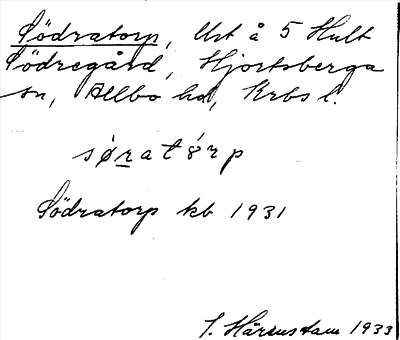 Södratorp, Urt å 5 Hult
Södregård, Hjortsberga
sn, Allbo hd, Krbs l.
sǿratórp
Södratorp kb 1931
Härenstam 1933